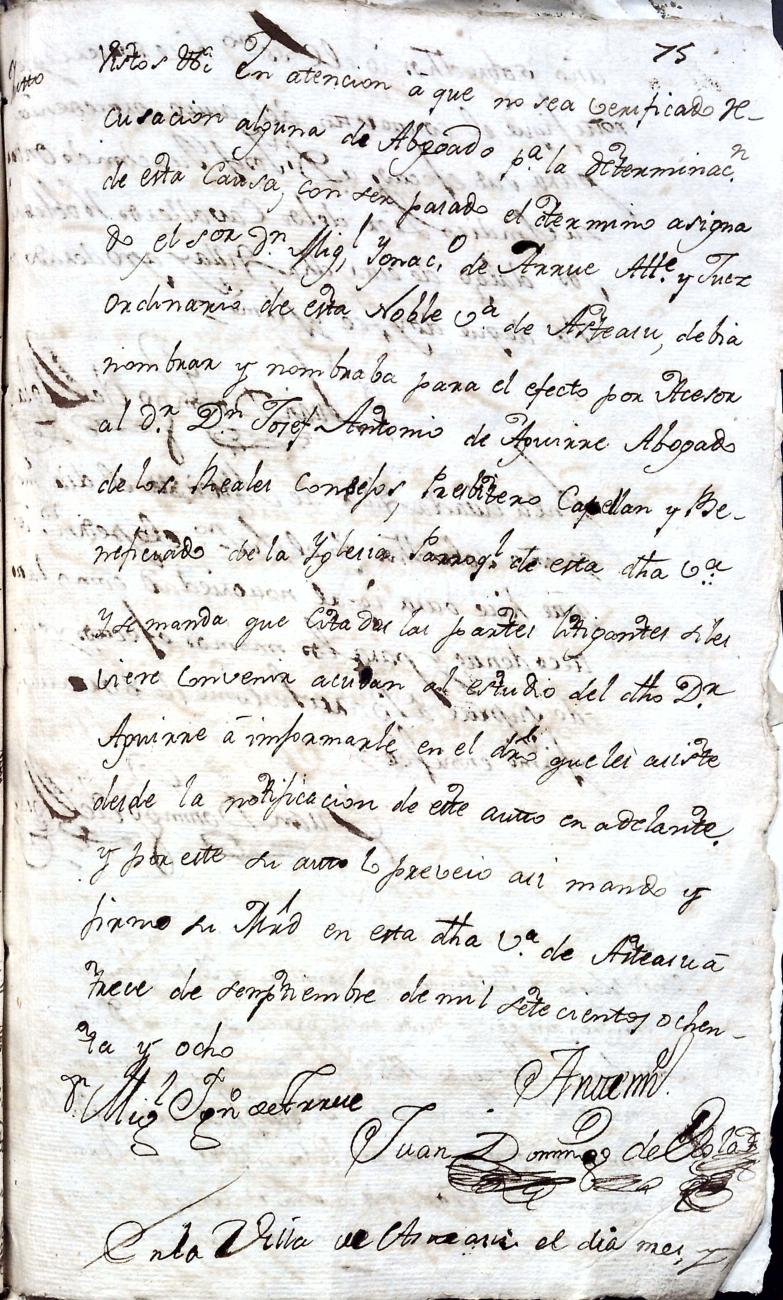 75
Autto
Vistos &ª En atencion a que no sea verificado re-
cusacion alguna de Abogado pª. la determinac.n
de esta Causa, con ser pasado el termino asigna
do el sor Dn. Mig.l Ygnac.o de Arrue Alle. y Juez
Ordinario de esta Noble Vª de Asteasu, debia
nombrar y nombraba para el efecto por Acesor
al d.r Dn Josef Antonio de Aguirre Abogado
de los Reales Consejos, Presbitero Capellan y Be-
neficiado de la Yglesia Parroq.l de esta dha Vª.
y se manda que citadas las partes litigantes si les
viere convenir acudan al estudio del dho Dr
Aguirre â informarle en el drho que les asiste
desde la notificacion de este autto en adelante.
y por este su autto lo proveio asi mando y
firmo su Mrd en esta dha V.ª de Asteasu â
trece de semptiembre de mil setecientos ochen-
ta y ocho
Dn Mig.l Ygn.o de Arrue
Antemi.
Juan Domingo de
En la Villa de Asteasu el dia mes, y